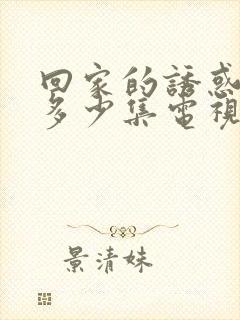 回家的誘惑
多少集電視
景清妹